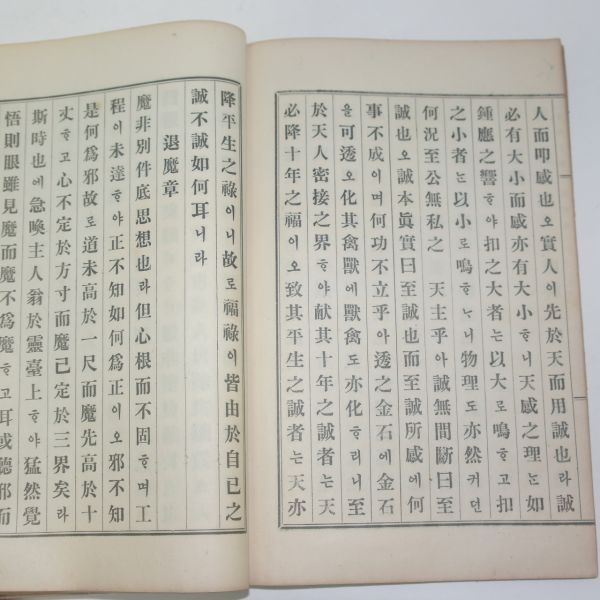 人而叩感也오實人이先於天而用誠也라誠
必有大小而感亦有大小하니天感之理는如
鍾應之響하야扣之大者는以大로鳴하고扣
之小者는以小로鳴하나니物理도亦然커던
何況至公無私之 天主乎아誠無間斷曰至
誠也오誠本眞實曰至誠也而至誠所感에何
事不成이며何功不立乎아透之金石에金石
을可透오化其禽獸에獸禽도亦化하리니至
於天人密接之界하야献其十年之誠者는天
必降十年之福이오致其平生之誠者는天亦
降平生之祿이니故로福祿이皆由於自己之
誠不誠如何耳니라
退魔章
魔非別件底思想也라但心根而不固하며工
程이未達하야正不知如何爲正이오邪不知
是何爲邪故로道未高於一尺而魔先高於十
丈하고心不定於方寸而魔已定於三界矣라
斯時也에急喚主人翁於靈臺上하야猛然覺
悟則眼雖見魔而魔不爲魔하고耳或聽邪而